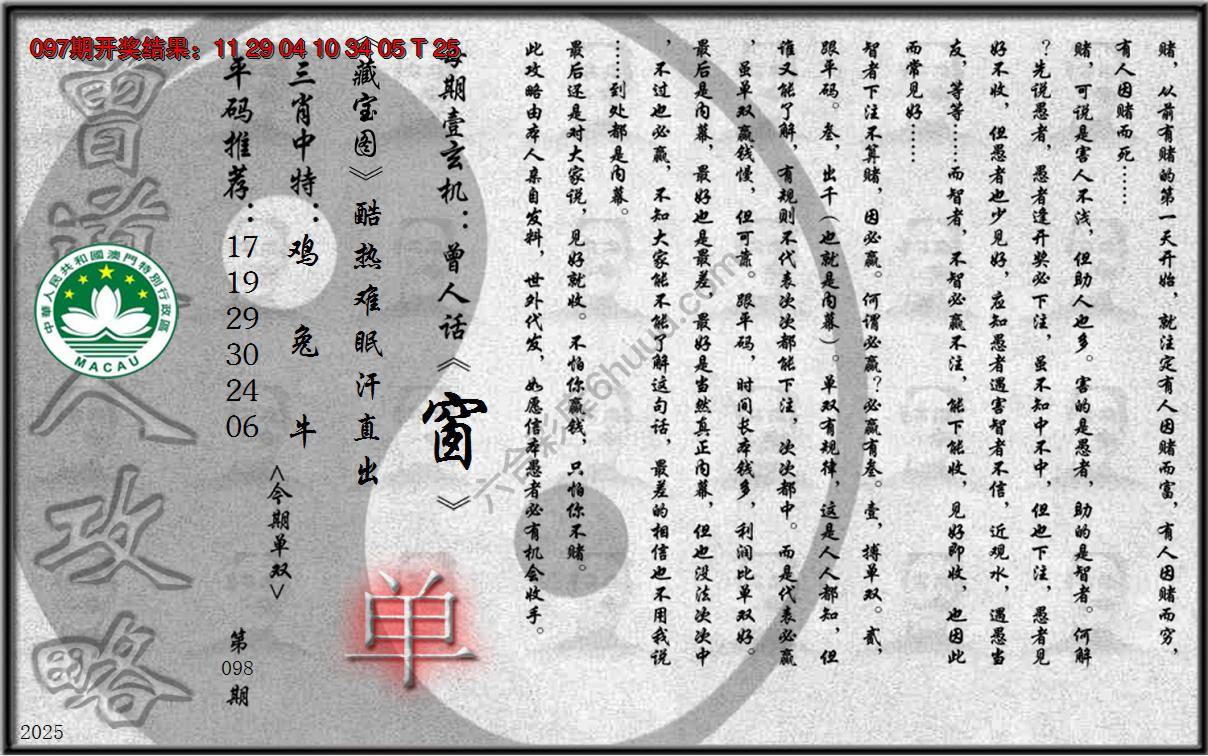 097期开奖结果：11 29 04 10 34 05 T 25
赌，从前有赌的第一天开始，就注定有人因赌而富，有人因赌而穷，
有人因赌而死……
赌，可说是害人不浅，但助人也多。害的是愚者，助的是智者。何解
？先说愚者，愚者逢开奖必下注，虽不知中不中，但也下注，愚者见
好不收，但愚者也少见好，应知愚者遇害智者不信，近观水，遇愚当
友，等等……而智者，不智必赢不注，能下能收，见好即收，也因此
而常见好……
智者下注不算赌，因必赢。何谓必赢？必赢有叁。壹，搏单双。贰，
跟平码。叁，出千（也就是内幕）。单双有规律，这是人人都知，但
谁又能了解，有规则不代表次次都能下注，次次都中。而是代表必赢
，虽单双赢钱慢，但可靠。跟平码，时间长本钱多，利润比单双好。
最后是内幕，最好也是最差，最好是当然真正内幕，但也没法次次中
，不过也必赢，不知大家能不能了解这句话，最差的相信也不用我说
……到处都是内幕。
最后还是对大家说，见好就收。不怕你赢钱，只怕你不赌。
此攻略由本人亲自发料，世外代发，如愿信本愚者必有机会收手。
每期壹玄机：曾人话《窗》
《藏宝图》酷热难眠汗直出
三肖中特：鸡 兔 牛
平码推荐：17 19 29 30 24 06
<今期单双>
单
第098期
曾道人攻略
中華人民共和國澳門特別行政區
MACAU
六合彩库6huuu.com
2025